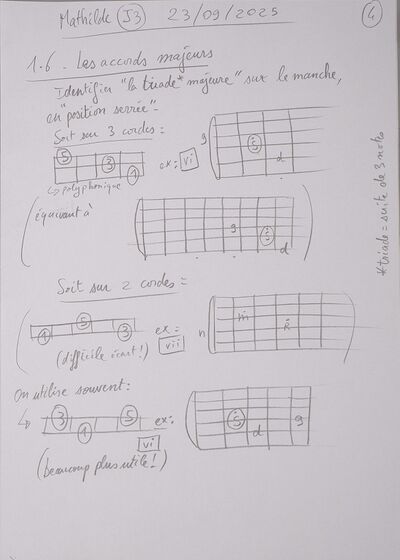 Mathilde (J3) 23/09/2025 (4)
1-6. Les accords majeurs
Identifier "la triade* majeure" sur le manche,
en "position serrée".
Soit sur 3 cordes :
5 3 1 ex : vi
g 5 d
↳ polyphonique
(équivaut à
g 5 d)
Soit sur 2 cordes =
1 5 3 ex = vii
n m R
(difficile écart !)
On utilise souvent :
↳ 3 1 5 ex : vi
5 d g
(beaucoup plus utile !)
* triade = suite de 3 notes